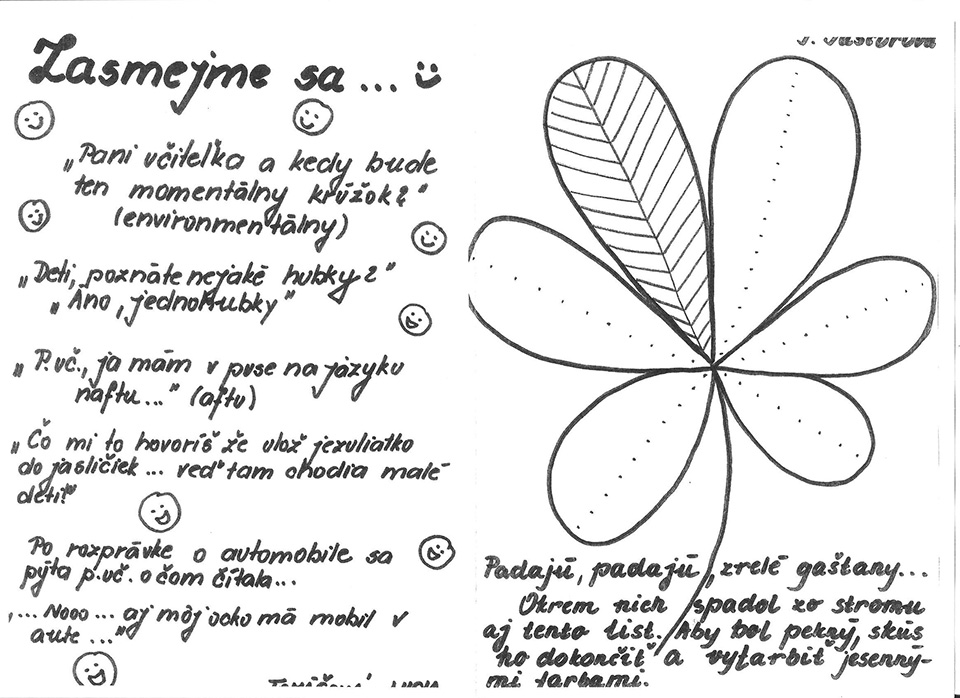 Zasmejme sa...
„Pani učiteľka a kedy bude
ten momentálny krúžok?"
(environmentálny)
„Deti, poznáte nejaké hubky?"
„Áno, jednohubky"
„P.uč., ja mám v puse na jazyku
naftu..." (aftu)
„Čo mi to hovoríš že ulož jezuliatko
do jasličiek... veď tam chodia malé
deti!"
Po rozprávke o automobile sa
pýta p.uč. o čom čítala...
„... Nooo... aj môj ocko má mobil v
aute..."
Padajú, padajú, zrelé gaštany...
Okrem nich spadol zo stromu
aj tento list. Aby bol pekný, skús
ho dokončiť a vyfarbiť jesenný-
mi farbami.